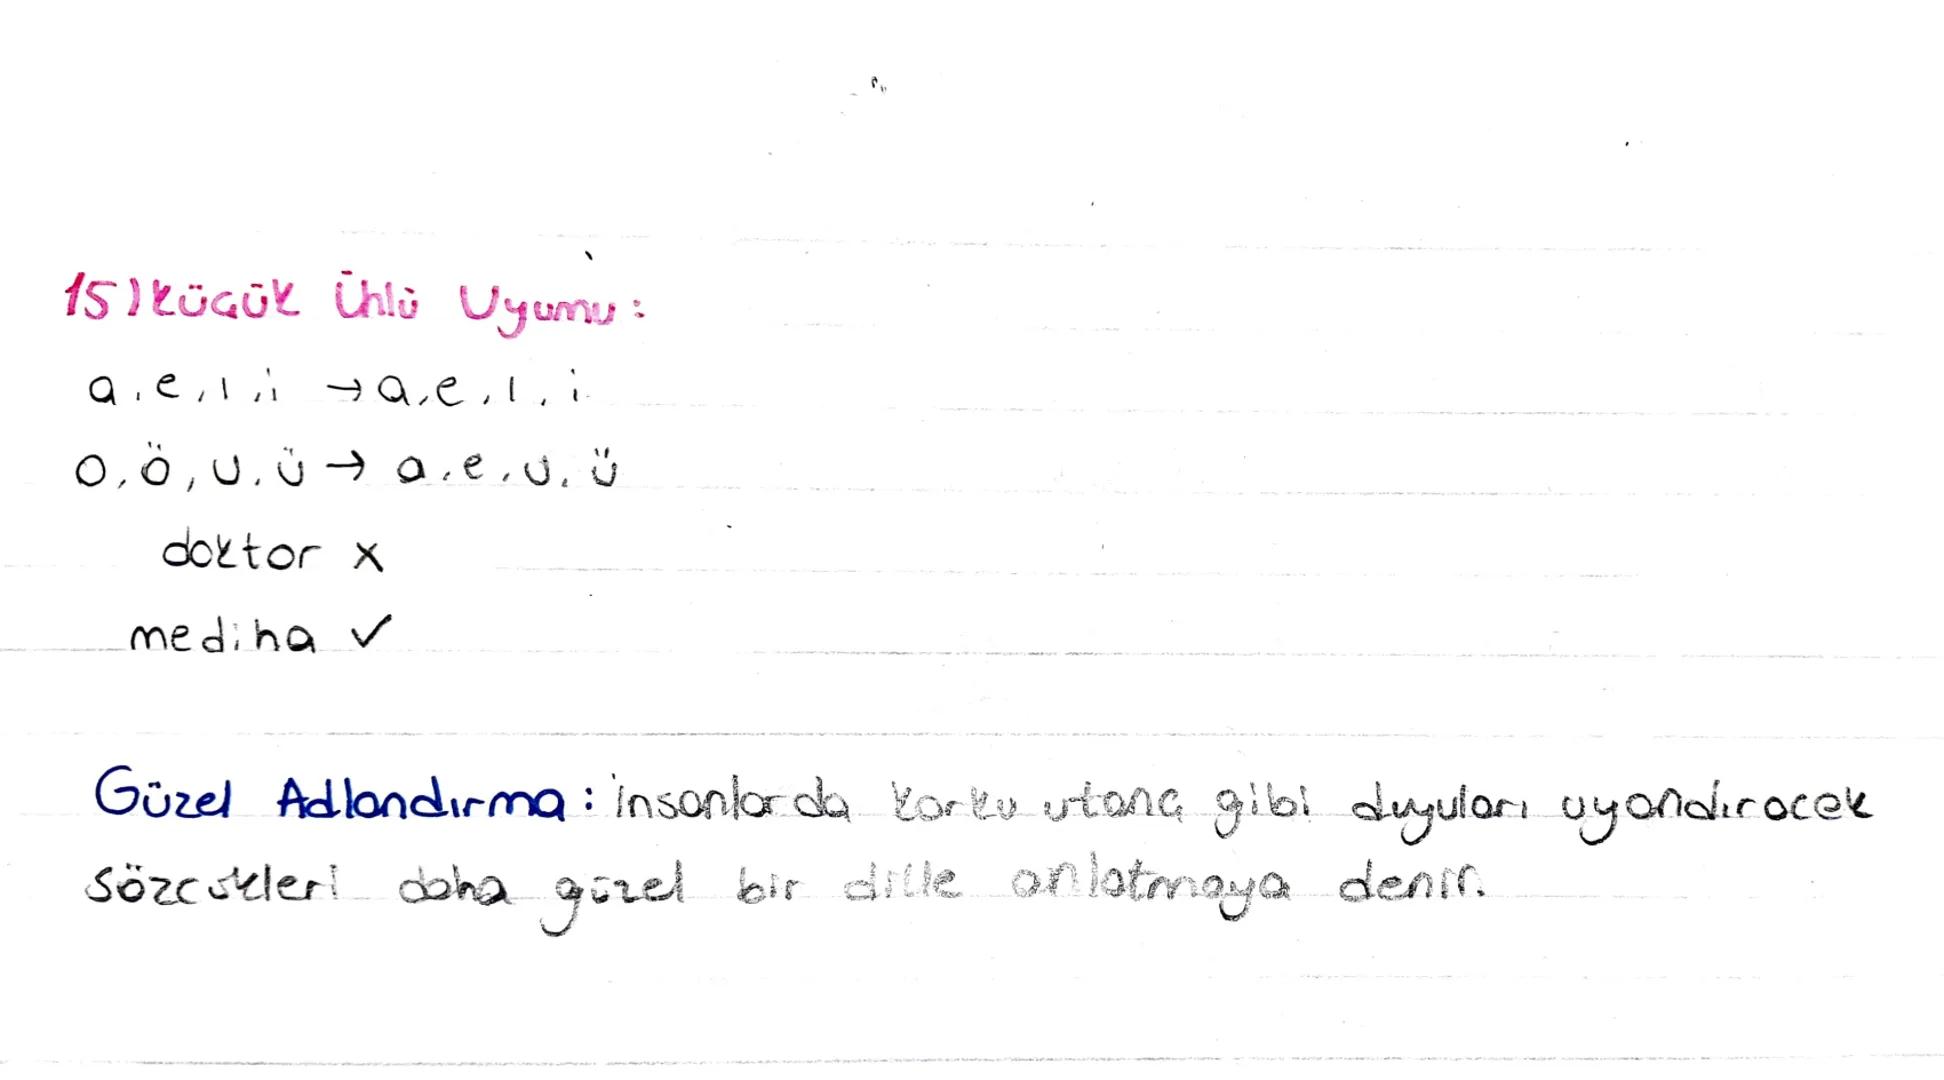 15) Küçük Ünlü Uyumu:
a, e, ı, i → a, e, ı, i
o, ö, u, ü → a, e, u, ü
doktor x
mediha ✓
Güzel Adlandırma: insanlarda korku utanç gibi duyguları uyandıracak
sözcükleri daha güzel bir dille anlatmaya denir.